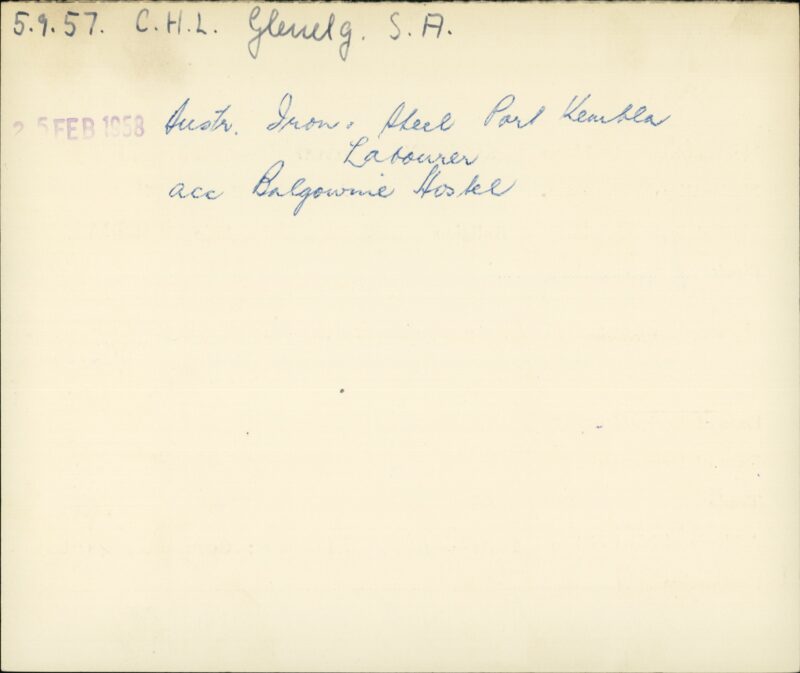 5.9.57. C.H.L. Glenelg. S.A.
25 FEB 1958 Austr. Iron & Steel Port Kembla
Labourer
acc Balgownie Hostel